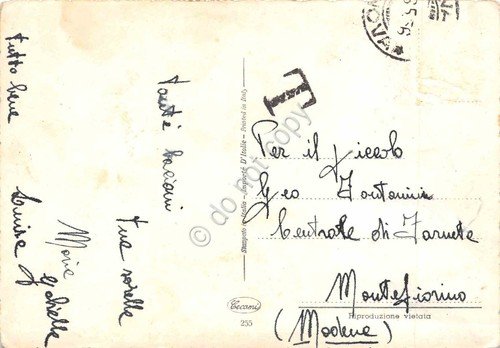 tutto bene
tanti bacioni
tua sorella
Maria
Gabriella
Luisa
Stampato in Italia - Imprimé D'Italie - Printed in Italy
T
Per il piccolo
Geo Fontanini
Centrale di Farneta
Montefiorino
(Modena)
Cecami
255
Riproduzione vietata
© do not copy